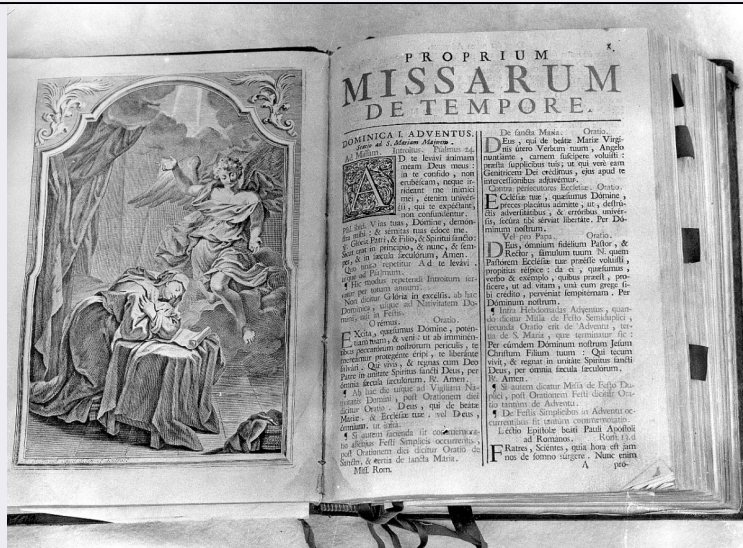 1.
PROPRIUM
MISSARUM
DE TEMPORE.
DOMINICA I. ADVENTUS.
Statio ad S. Mariam Majorem.
Ad Missam. Introitus. Psalmus 24.
AD te levávi ánimam
meam Deus meus:
in te confído, non
erubéscam, neque ir-
rídeant me inimíci
mei, étenim univér-
si, qui te expéctant,
non confundéntur.
Psal. ibid. Vias tuas, Dómine, demón-
stra mihi: & sémitas tuas édoce me.
℣. Glória Patri, & Fílio, & Spirítui sancto:
Sicut erat in princípio, & nunc, & sem-
per, & in sæcula sæculórum, Amen.
Quo finito repetitur Ad te levávi.
usque ad Psalmum.
¶ Hic modus repetendi Introitum ser-
vatur per totum annum.
Non dicitur Glória in excélsis, ab hac
Dominica, usque ad Nativitatem Do-
mini, nisi in Festis.
Orémus. Oratio.
EXcita, quæsumus Dómine, potén-
tiam tuam, & veni: ut ab imminén-
tibus peccatórum nostrórum perículis, te
mereámur protegénte éripi, te liberánte
salvári. Qui vivis, & regnas cum Deo
Patre in unitáte Spíritus sancti Deus, per
ómnia sæcula sæculórum, ℟. Amen.
¶ Ab hac die usque ad Vigiliam Na-
tivitatis Domini, post Orationem diei
dicitur Oratio. Deus, qui de beátæ
Maríæ. & Ecclésiæ tuæ. vel Deus,
ómnium. ut infra.
¶ Si autem facienda sit commemora-
tio alicujus Festi Simplicis occurrentis,
post Orationem diei dicitur Oratio de
Sancto, & tertia de sancta Maria.
Miss. Rom.
De sancta Maria. Oratio.
DEus, qui de beátæ Maríæ Virgi-
nis útero Verbum tuum, Angelo
nuntiánte, carnem suscípere voluísti:
præsta supplícibus tuis; ut qui verè eam
Genitrícem Dei crédimus, ejus apud te
intercessiónibus adjuvémur.
Contra persecutores Ecclesiæ. Oratio.
ECclésiæ tuæ, quæsumus Dómine,
preces placátus admítte, ut, destrú-
ctis adversitátibus, & erróribus univér-
sis, secúra tibi sérviat libertáte. Per Dó-
minum nostrum.
Vel pro Papa. Oratio.
DEus, ómnium fidélium Pastor, &
Rector, fámulum tuum N. quem
Pastórem Ecclésiæ tuæ præésse voluísti,
propítius réspice: da ei, quæsumus,
verbo & exémplo, quibus præést, pro-
fícere, ut ad vitam, unà cum grege si-
bi crédito, pervéniat sempitérnam. Per
Dóminum nostrum.
¶ Infra Hebdomadas Adventus, quan-
do dicitur Missa de Festo Semiduplici,
secunda Oratio erit de Adventu, ter-
tia de S. Maria, quæ terminatur sic:
Per eúmdem Dóminum nostrum Jesum
Christum Fílium tuum: Qui tecum
vivit, & regnat in unitáte Spíritus sancti
Deus, per ómnia sæcula sæculórum.
℟. Amen.
¶ Si autem dicatur Missa de Festo Du-
plici, post Orationem Festi dicitur Ora-
tio tantùm de Adventu.
¶ De Festis Simplicibus in Adventu oc-
currentibus fit tantùm commemoratio.
Léctio Epístolæ beáti Pauli Apóstoli
ad Romános. Rom. 13. d
FRatres, Sciéntes, quia hora est jam
nos de somno súrgere. Nunc enim
A pro-